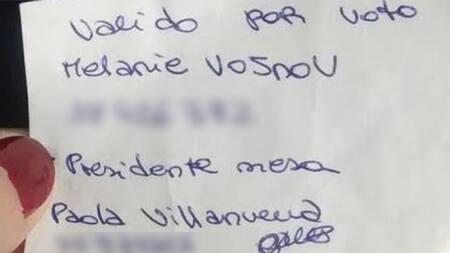 Valido por voto
Melanie Vosnov
Presidente mesa
Paola Villanueva